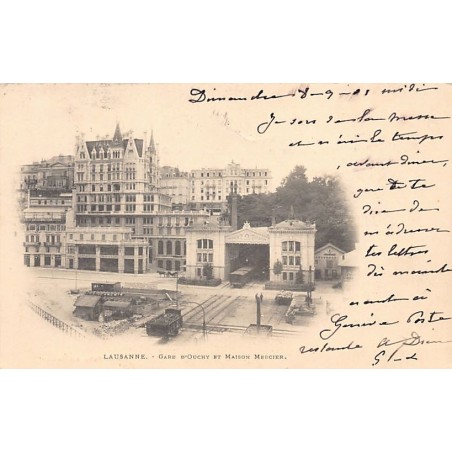 Dimanche 8-9-01 midi
Je sors de la messe
et n'ai que le temps,
avant diner,
que de te
dire de
m'adresser
tes lettres
dès
nant à
Genève Poste
restante
LAUSANNE. - GARE D'OUCHY ET MAISON MERCIER.